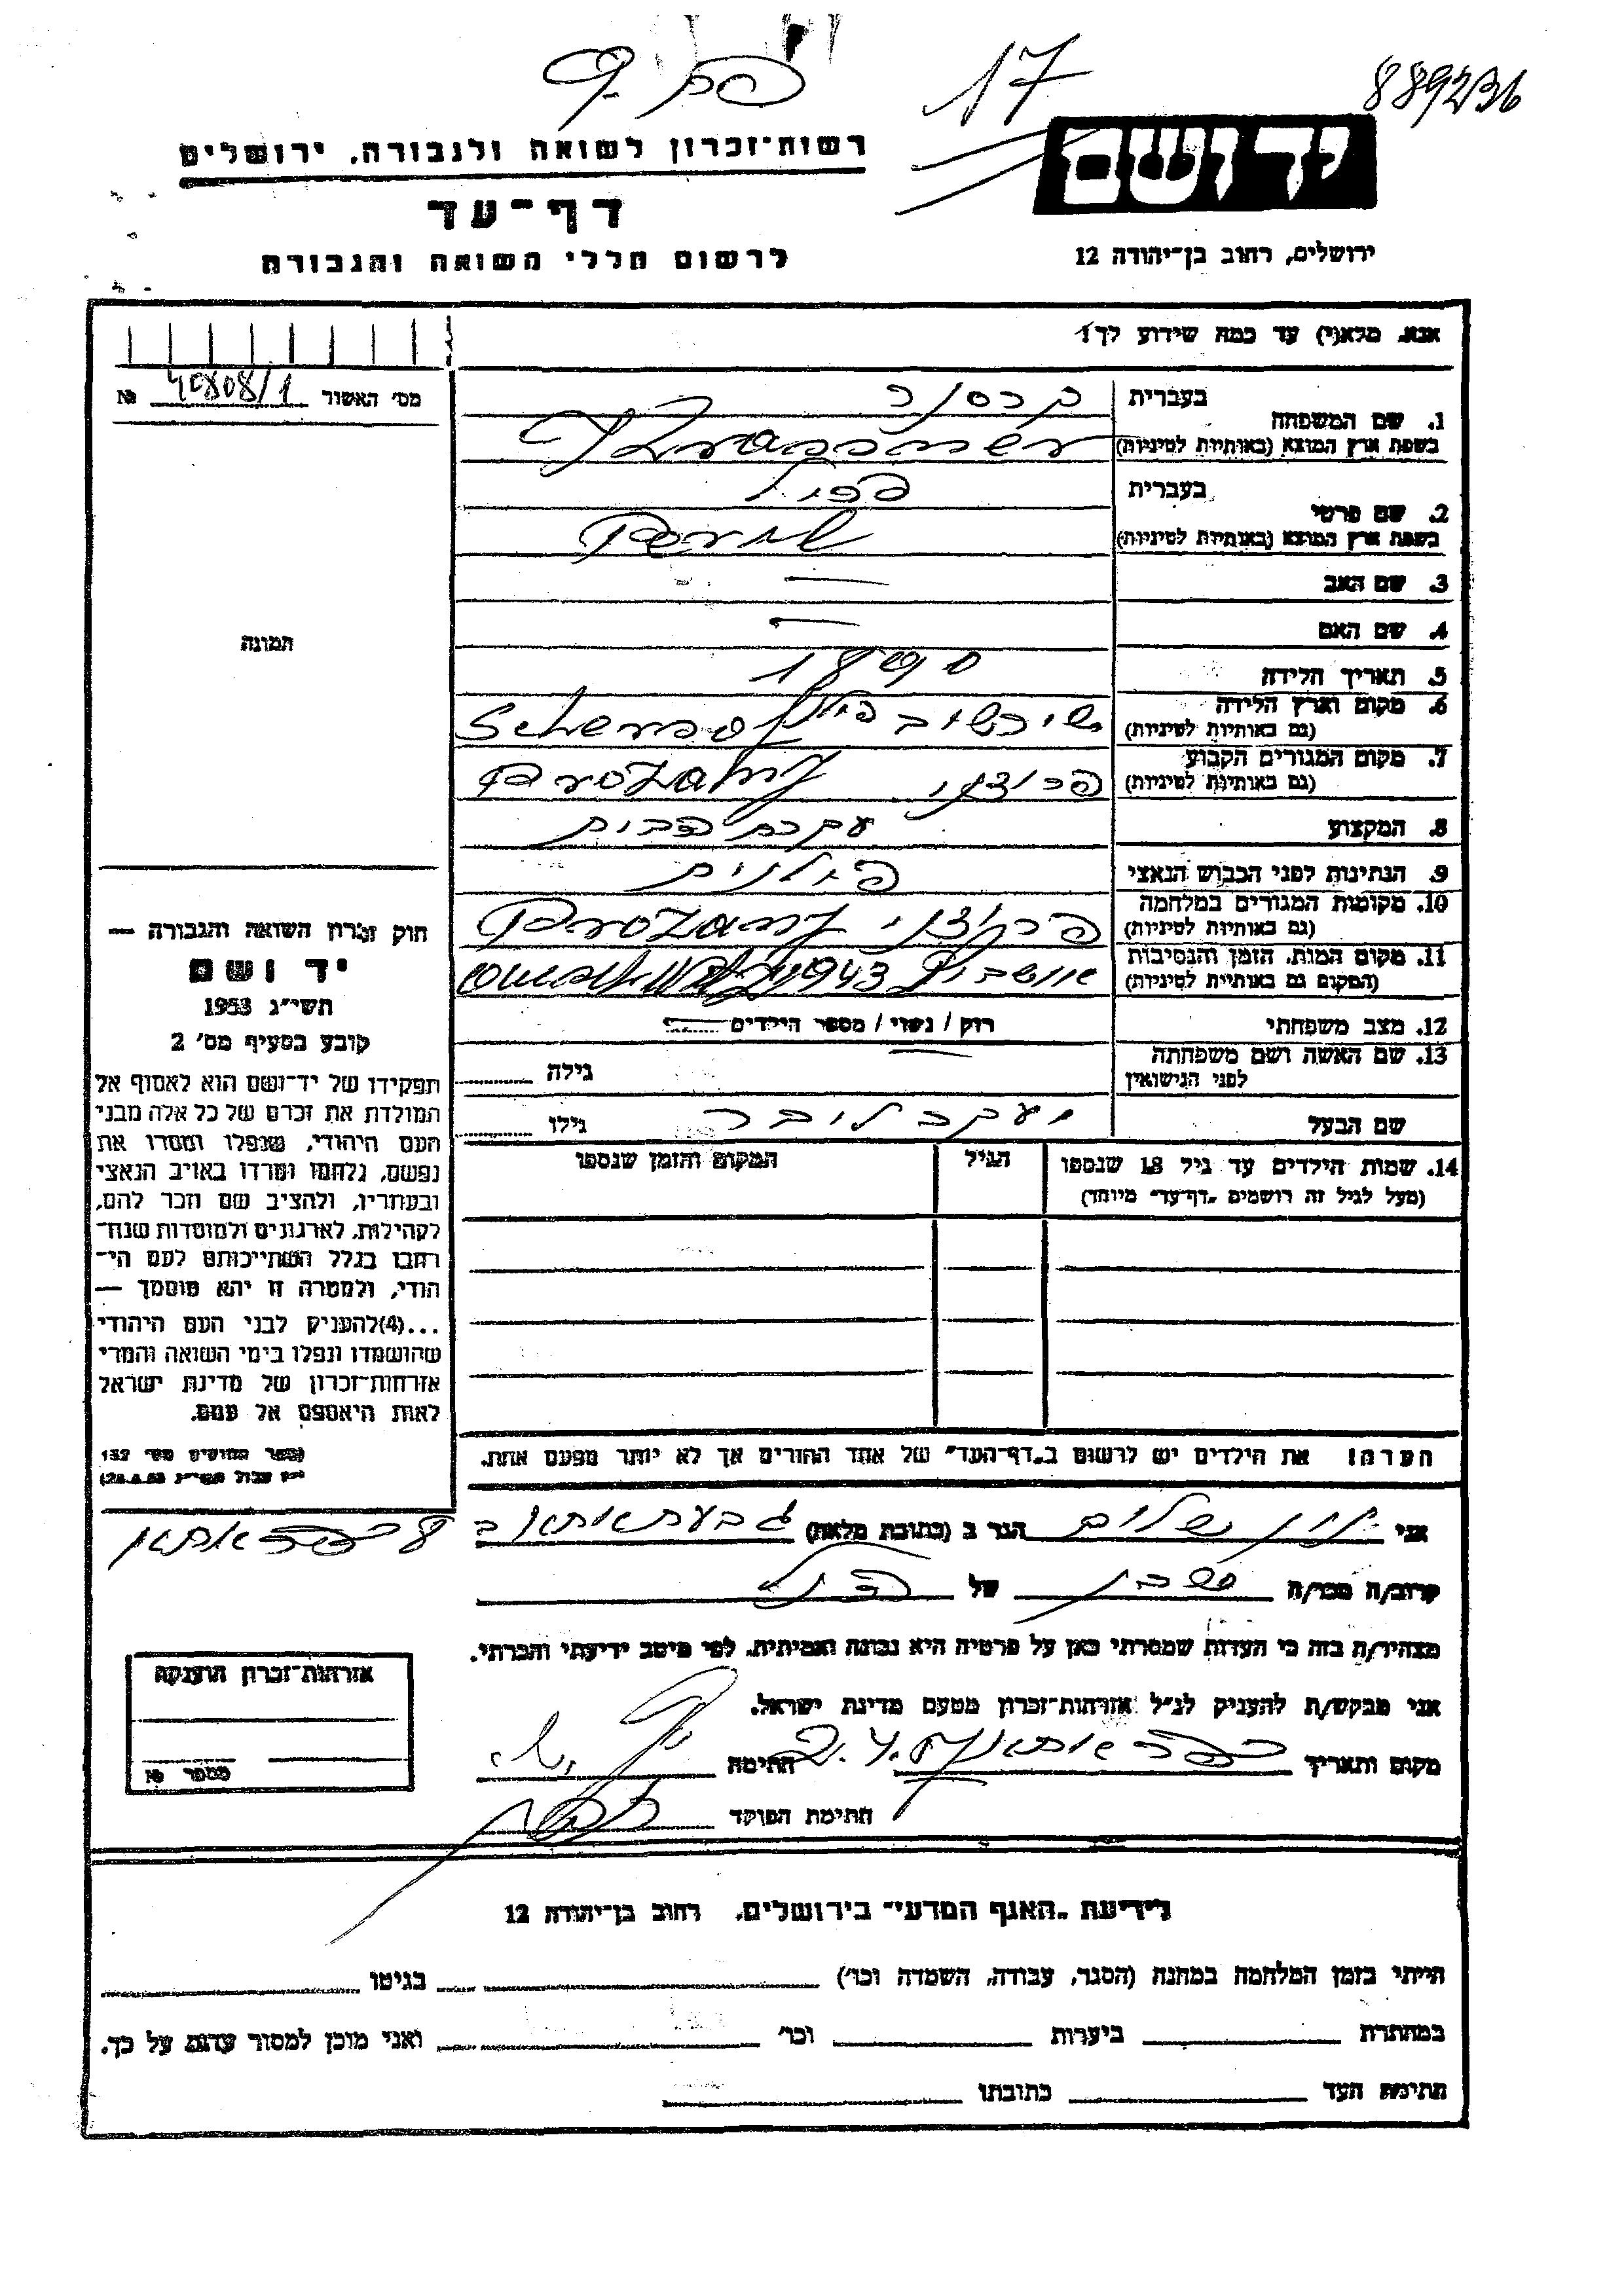 17
889236
יד ושם
רשות־זכרון לשואה ולגבורה, ירושלים
דף־עד
לרשום חללי השואה והגבורה
ירושלים, רחוב בן־יהודה 12
אנא, מלא(י) עד כמה שידוע לך!
מס׳ האשור 40808/1 №
תמונה
1. שם המשפחה
בעברית קרסנר
בשפת ארץ המוצא (באותיות לטיניות) Krassner
2. שם פרטי
בעברית פרול
בשפת ארץ המוצא (באותיות לטיניות) Perul
3. שם האב —
4. שם האם —
5. תאריך הלידה 1890
6. מקום וארץ הלידה
(גם באותיות לטיניות)
7. מקום המגורים הקבוע
(גם באותיות לטיניות) פרוז'ני Prozany
8. המקצוע עקרת הבית
9. הנתינות לפני הכבוש הנאצי פולנית
10. מקומות המגורים במלחמה
(גם באותיות לטיניות) פרוז'ני Prozany
11. מקום המות, הזמן והנסיבות
(המקום גם באותיות לטיניות) אושביץ 1943
12. מצב משפחתי רוק / נשוי / מספר הילדים
13. שם האשה ושם משפחתה
לפני הנישואין גילה
שם הבעל יעקב ליבר גילו
14. שמות הילדים עד גיל 18 שנספו
(מעל לגיל זה רושמים „דף־עד״ מיוחד)
הגיל
המקום והזמן שנספו
הערה! את הילדים יש לרשום ב„דף־העד״ של אחד ההורים אך לא יותר מפעם אחת.
חוק זכרון השואה והגבורה —
יד ושם
תשי״ג 1953
קובע בסעיף מס׳ 2
תפקידו של יד־ושם הוא לאסוף אל
המולדת את זכרם של כל אלה מבני
העם היהודי, שנפלו ומסרו את
נפשם, נלחמו ומרדו באויב הנאצי
ובעוזריו, ולהציב שם וזכר להם,
לקהילות, לארגונים ולמוסדות שנח־
רבו בגלל השתייכותם לעם הי־
הודי, ולמטרה זו יהא מוסמך —
...(4)להעניק לבני העם היהודי
שהושמדו ונפלו בימי השואה והמרי
אזרחות־זכרון של מדינת ישראל
לאות היאספם אל עמם.
(ספר החוקים מס׳ 132
י״ז אלול תשי״ג 28.8.53)
אני שלום הגר ב (כתובת מלאה) גבעת אתא
קרוב/ה מכר/ה שכן של
מצהיר/ה בזה כי העדות שמסרתי כאן על פרטיה היא נכונה ואמיתית, לפי מיטב ידיעתי והכרתי.
אני מבקש/ת להעניק לנ״ל אזרחות־זכרון מטעם מדינת ישראל.
מקום ותאריך כפר אתא חתימה
חתימת הפוקד
אזרחות־זכרון הוענקה
מספר №
לידיעת „האגף המדעי״ בירושלים, רחוב בן־יהודה 12
הייתי בזמן המלחמה במחנה (הסגר, עבודה, השמדה וכו׳) בגיטו
במחתרת ביערות וכו׳ ואני מוכן למסור עדות על כך.
חתימת העד כתובתו